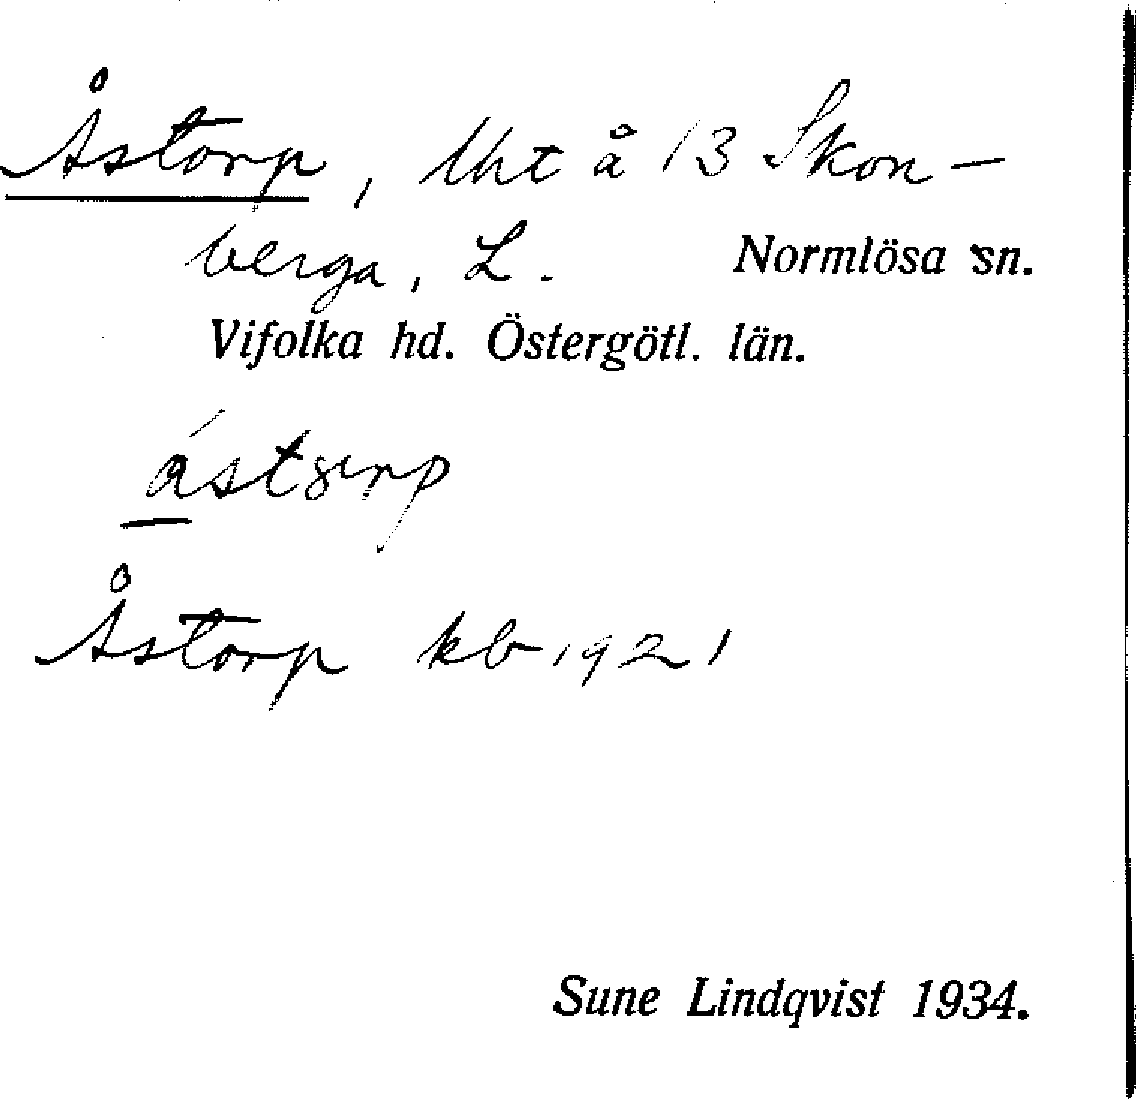 Åstorp, lht å 13 Skon-
berga, L. Normlösa sn.
Vifolka hd. Östergötl. län.
Åstorp kb 1921
Sune Lindqvist 1934.